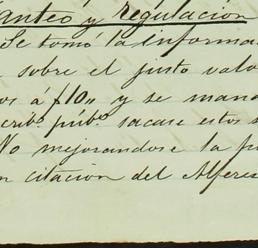 anteo y regulacion
Se tomó la informa
sobre el justo valo
os á $10,, y se mana
crib.º púb.º sacase estos
No mejorandose la pu
n citacion del Alferes